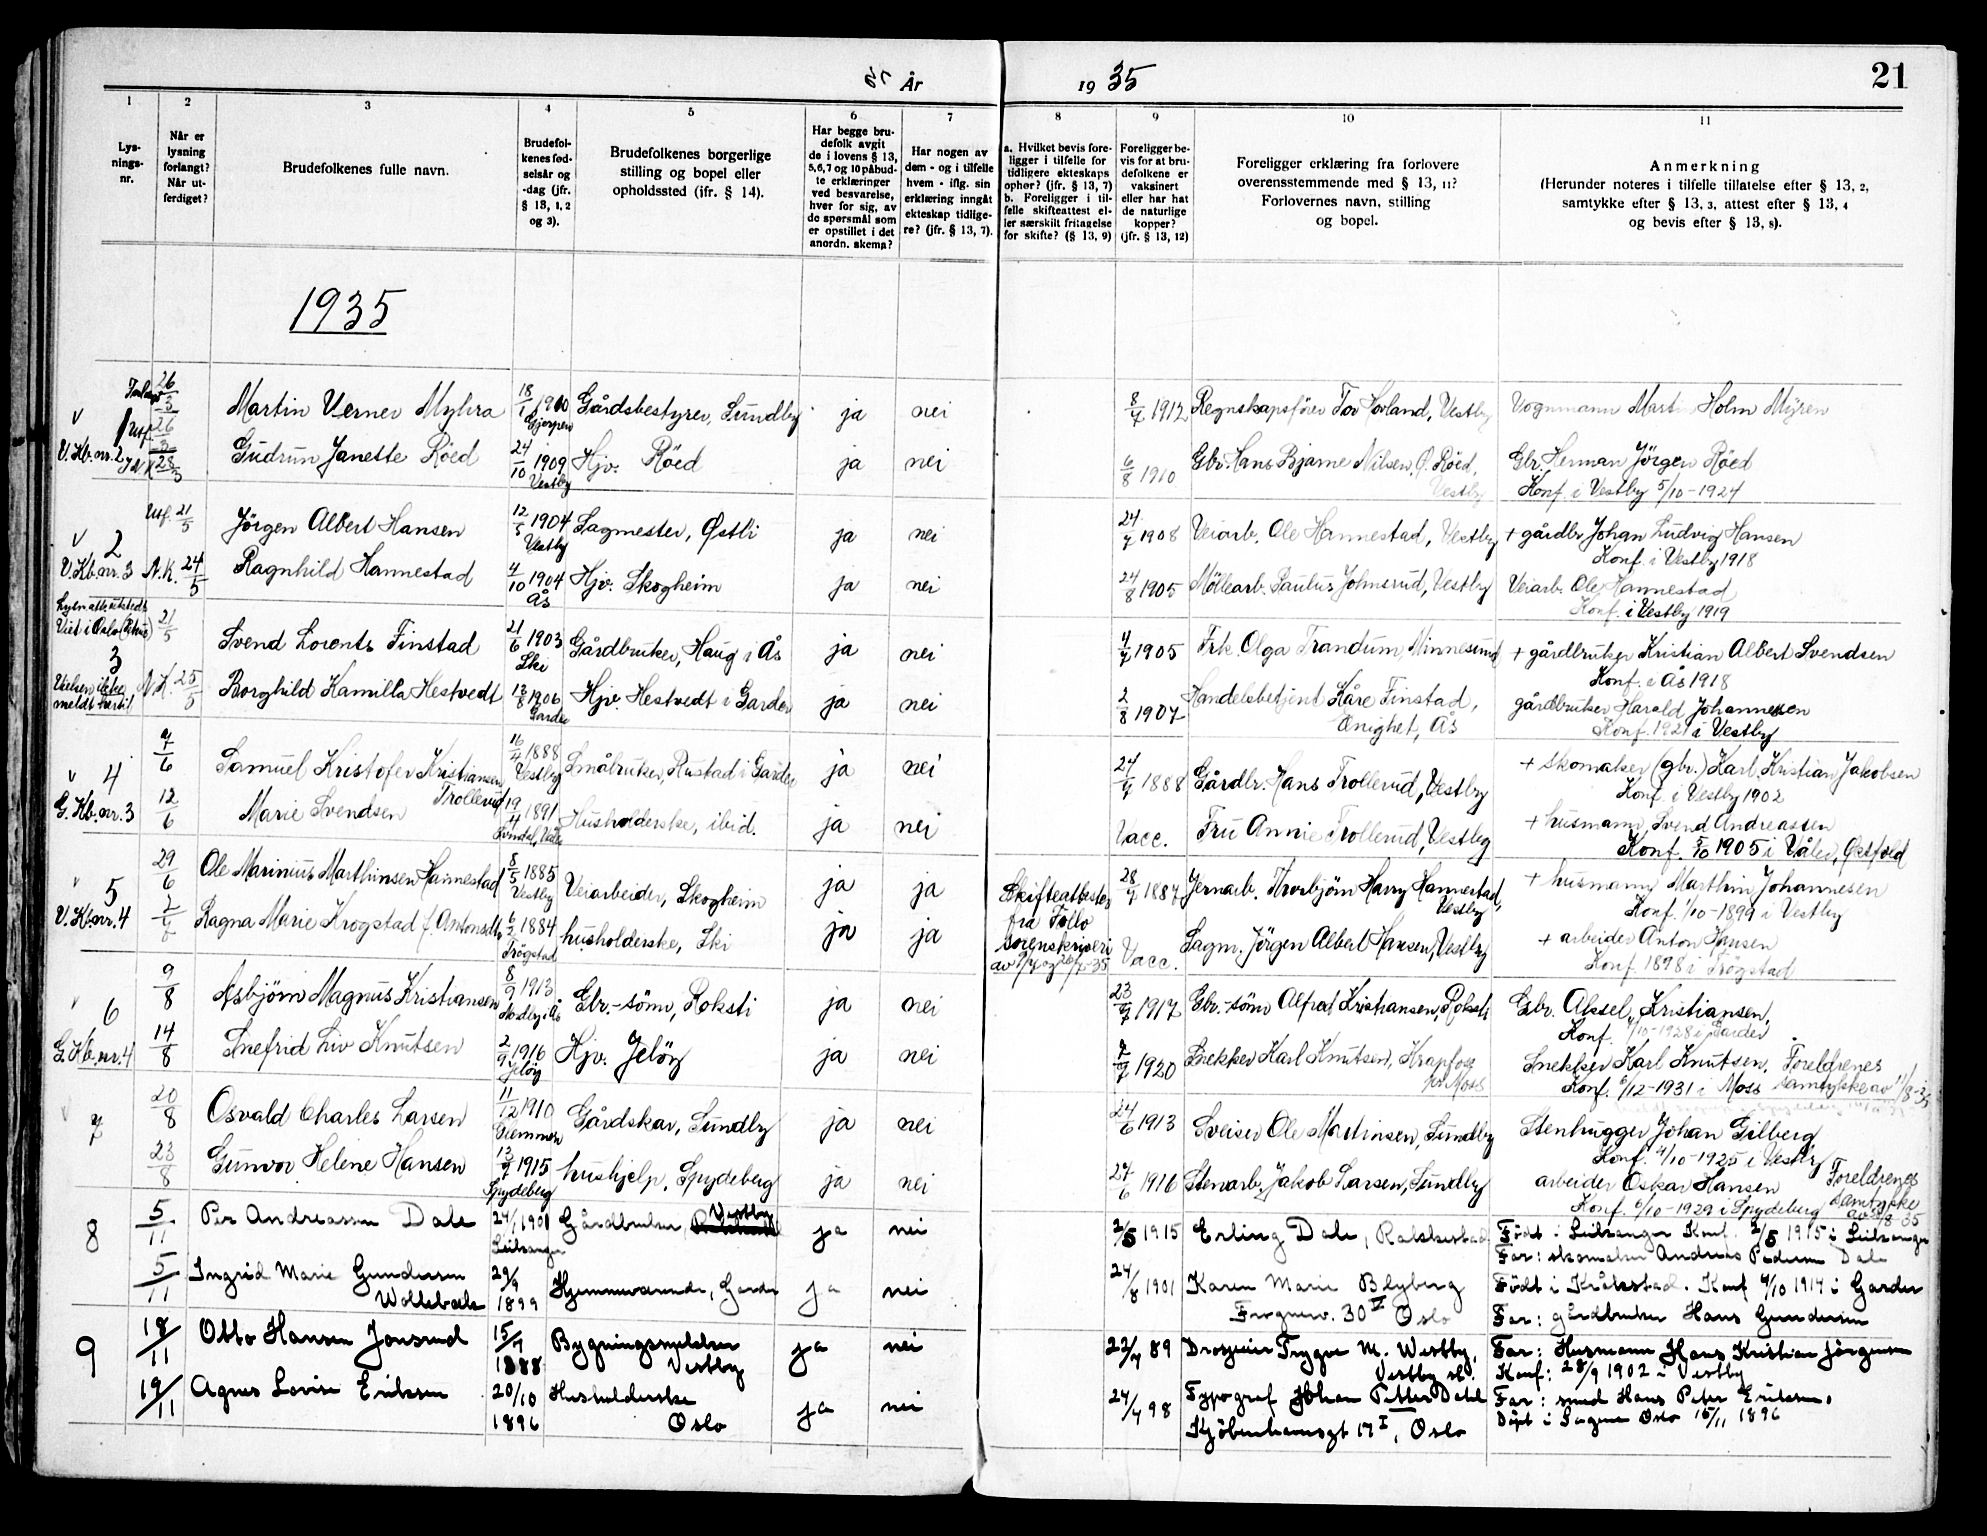 År 19 35
21
1 2 3 4 5 6 7 8 9 10 11
Lys-
nings-
nr.
Når er
lysning
forlangt?
Når ut-
ferdiget?
Brudefolkenes fulle navn.
Brudefol-
kenes fød-
selsår og
-dag (jfr.
§ 13, 1, 2
og 3).
Brudefolkenes borgerlige
stilling og bopel eller
opholdssted (jfr. § 14).
Har begge bru-
defolk avgit
de i lovens § 13,
5,6,7 og 10 påbud-
te erklæringer
ved besvarelse,
hver for sig, av
de spørsmål som
er opstillet i det
anordn. skema?
Har nogen av
dem - og i tilfelle
hvem - iflg. sin
erklæring inngåt
ekteskap tidlige-
re? (jfr. § 13, 7).
a. Hvilket bevis fore-
ligger i tilfelle for
tidligere ekteskaps
ophør? (jfr. § 13, 7)
b. Foreligger i til-
felle skifteattest el-
ler særskilt fritagelse
for skifte? (§ 13, 9)
Foreligger be-
vis for at bru-
defolkene er
vaksinert
eller har hat
de naturlige
kopper?
(jfr. § 13, 12)
Foreligger erklæring fra forlovere
overensstemmende med § 13, 11?
Forlovernes navn, stilling
og bopel.
Anmerkning
(Herunder noteres i tilfelle tillatelse efter § 13, 2,
samtykke efter § 13, 3, attest efter § 13, 4
og bevis efter § 13, 8).
1935
26/3 Martin Verner Myhra 18/1 1910 Gjerpen Gårdsbestyrer, Sundby ja nei 8/7 1912 Regnskapsfører Tor Hovland, Vestby Vognmann Martin Holm Myren
V.Kb.nr.2 28/3 Gudrun Janette Röed 24/10 1909 Vestby Hjv. Röed ja nei 6/8 1910 Gbr. Hans Bjarne Nilsen, Ø. Röed, Vestby Gbr. Herman Jörgen Röed
Konf. i Vestby 5/10-1924
2 Utf. 21/5 Jörgen Albert Hansen 12/5 1904 Vestby Sagmester, Østli ja nei 24/7 1908 Veiarb. Ole Hannestad, Vestby + gårdbr Johan Ludvig Hansen
Konf. i Vestby 1918
V.Kb.nr.3 N.K. 24/5 Ragnhild Hannestad 4/10 1904 Ås Hjv. Skogheim ja nei 24/8 1905 Möllearb. Paulus Johnsrud, Vestby Veiarb. Ole Hannestad
Konf. i Vestby 1919
3 21/5 Svend Lorents Finstad 21/6 1903 Ski Gårdbruker, Haug i Ås ja nei 4/7 1905 Frk. Olga Trandum Minnesund + gårdbruker Kristian Albert Svendsen
Konf. i Ås 1918
Vielsen ikke meldt hertil N.K. 25/5 Borghild Kamilla Hestvedt 13/8 1906 Garder Hjv. Hestvedt i Garder ja nei 2/8 1907 Handelsbetjent Kåre Finstad, Enighet, Ås gårdbruker Harald Johannesen
Konf. 1921 i Vestby
4 7/6 Samuel Kristofer Kristiansen Trollerud 16/4 1888 Vestby Småbruker, Rustad i Garder ja nei 24/7 1888 Gårdbr. Hans Trollerud, Vestby + Skomaker (gbr.) Karl Kristian Jakobsen
Konf. i Vestby 1902
G.Kb.nr.3 12/6 Marie Svendsen 19/4 1891 Husholderske, ibid. ja nei Vacc. Fru Annie Trollerud, Vestby + husmann Svend Andreassen
Konf. 5/10 1905 i Våler, Østfold
5 29/6 Ole Marinius Marthinsen Hannestad 8/5 1885 Vestby Veiarbeider, Skogheim ja ja Skifteattester fra Follo sorenskriveri 28/7 1887 Jernarb. Thorbjörn Harry Hannestad, Vestby + husmann Marthin Johannesen
Konf. 1/10-1899 i Vestby
V.Kb.nr.4 Ragna Marie Krogstad f. Antonsdtr 6/2 1884 Trögstad husholderske, Ski ja ja Vacc. Sagm. Jörgen Albert Hansen, Vestby + arbeider Anton Hansen
Konf. 1898 i Trögstad
6 9/8 Asbjörn Magnus Kristiansen 8/9 1913 Gbr.-sönn, Roksti ja nei 23/7 1917 Gbr.-sönn Alfred Kristiansen, Roksti Gbr. Aksel Kristiansen,
Konf. /10-1928 i Garder
G.Kb.nr.4 14/8 Snefrid Liv Knutsen 2/9 1916 Jelöy Hjv. Jelöy ja nei 7/7 1920 Snekker Karl Knutsen, Krapfos pr. Moss Snekker Karl Knutsen. Foreldrenes samtykke av 11/8-35
Konf. 6/12-1931 i Moss
7 20/8 Osvald Charles Larsen 11/12 1910 Glemmen Gårdskar, Sundby ja nei 24/6 1913 Sveiser Ole Martinsen, Sundby Stenhugger Johan Gilberg
Konf. 4/10-1925 i Vestby
23/8 Gunvor Helene Hansen 13/7 1915 Spydeberg hushjelp, Spydeberg ja nei 24/6 1916 Stenarb. Jakob Larsen, Sundby arbeider Oskar Hansen Foreldrenes samtykke
Konf. 6/10-1929 i Spydeberg
8 5/11 Per Andreassen Dale 24/1 1901 Leikanger Gårdbruker Vestby ja nei 2/5 1915 Erling Dale, Födt i Leikanger Konf. 2/5 1915 i Leikanger
Far: skomaker Andreas Pedersen Dale
5/11 Ingrid Marie Gundersen Wollebæk 29/9 1899 Hjemmeværende, Garder ja nei 24/8 1901 Karen Marie Blyberg
Frognerv. 30 IV Oslo Födt i Kråkstad. Konf 4/10 1914 i Garder
Far: gårdbruker Hans Gundersen
9 18/11 Otto Hansen Jonsrud 15/9 1888 Bygningssnekker Vestby ja nei 23/7 89 Drosjeeier Trygve M. Westby, Vestby st. Far: Husmann Hans Kristian Jörgensen
Konf: 28/9 1902 i Vestby
19/11 Agnes Lovise Eriksen 20/10 1896 Husholderske Oslo ja nei 24/7 98 Typograf Johan Petter Dahl
Kjöbenhavnsgt 17 I, Oslo Far: smed Hans Peter Eriksen.
Döpt i Sagene Oslo 15/11 1896